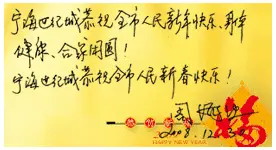 宁海世纪城恭祝全市人民新年快乐、身体
健康、合家团圆！
宁海世纪城恭祝全市人民新春快乐！
2008.12.30
恭贺新禧
HAPPY NEW YEAR
福